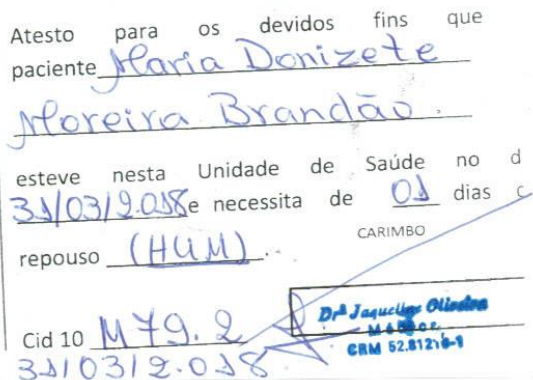 Atesto para os devidos fins que
paciente Maria Donizete
Moreira Brandão.
esteve nesta Unidade de Saúde no d
31/03/2.018 e necessita de 01 dias c
repouso (HUM).
CARIMBO
Drª Jaqueline Oliveira
CRM 52.81216-1
Cid 10 M79.2
31/03/2.018.